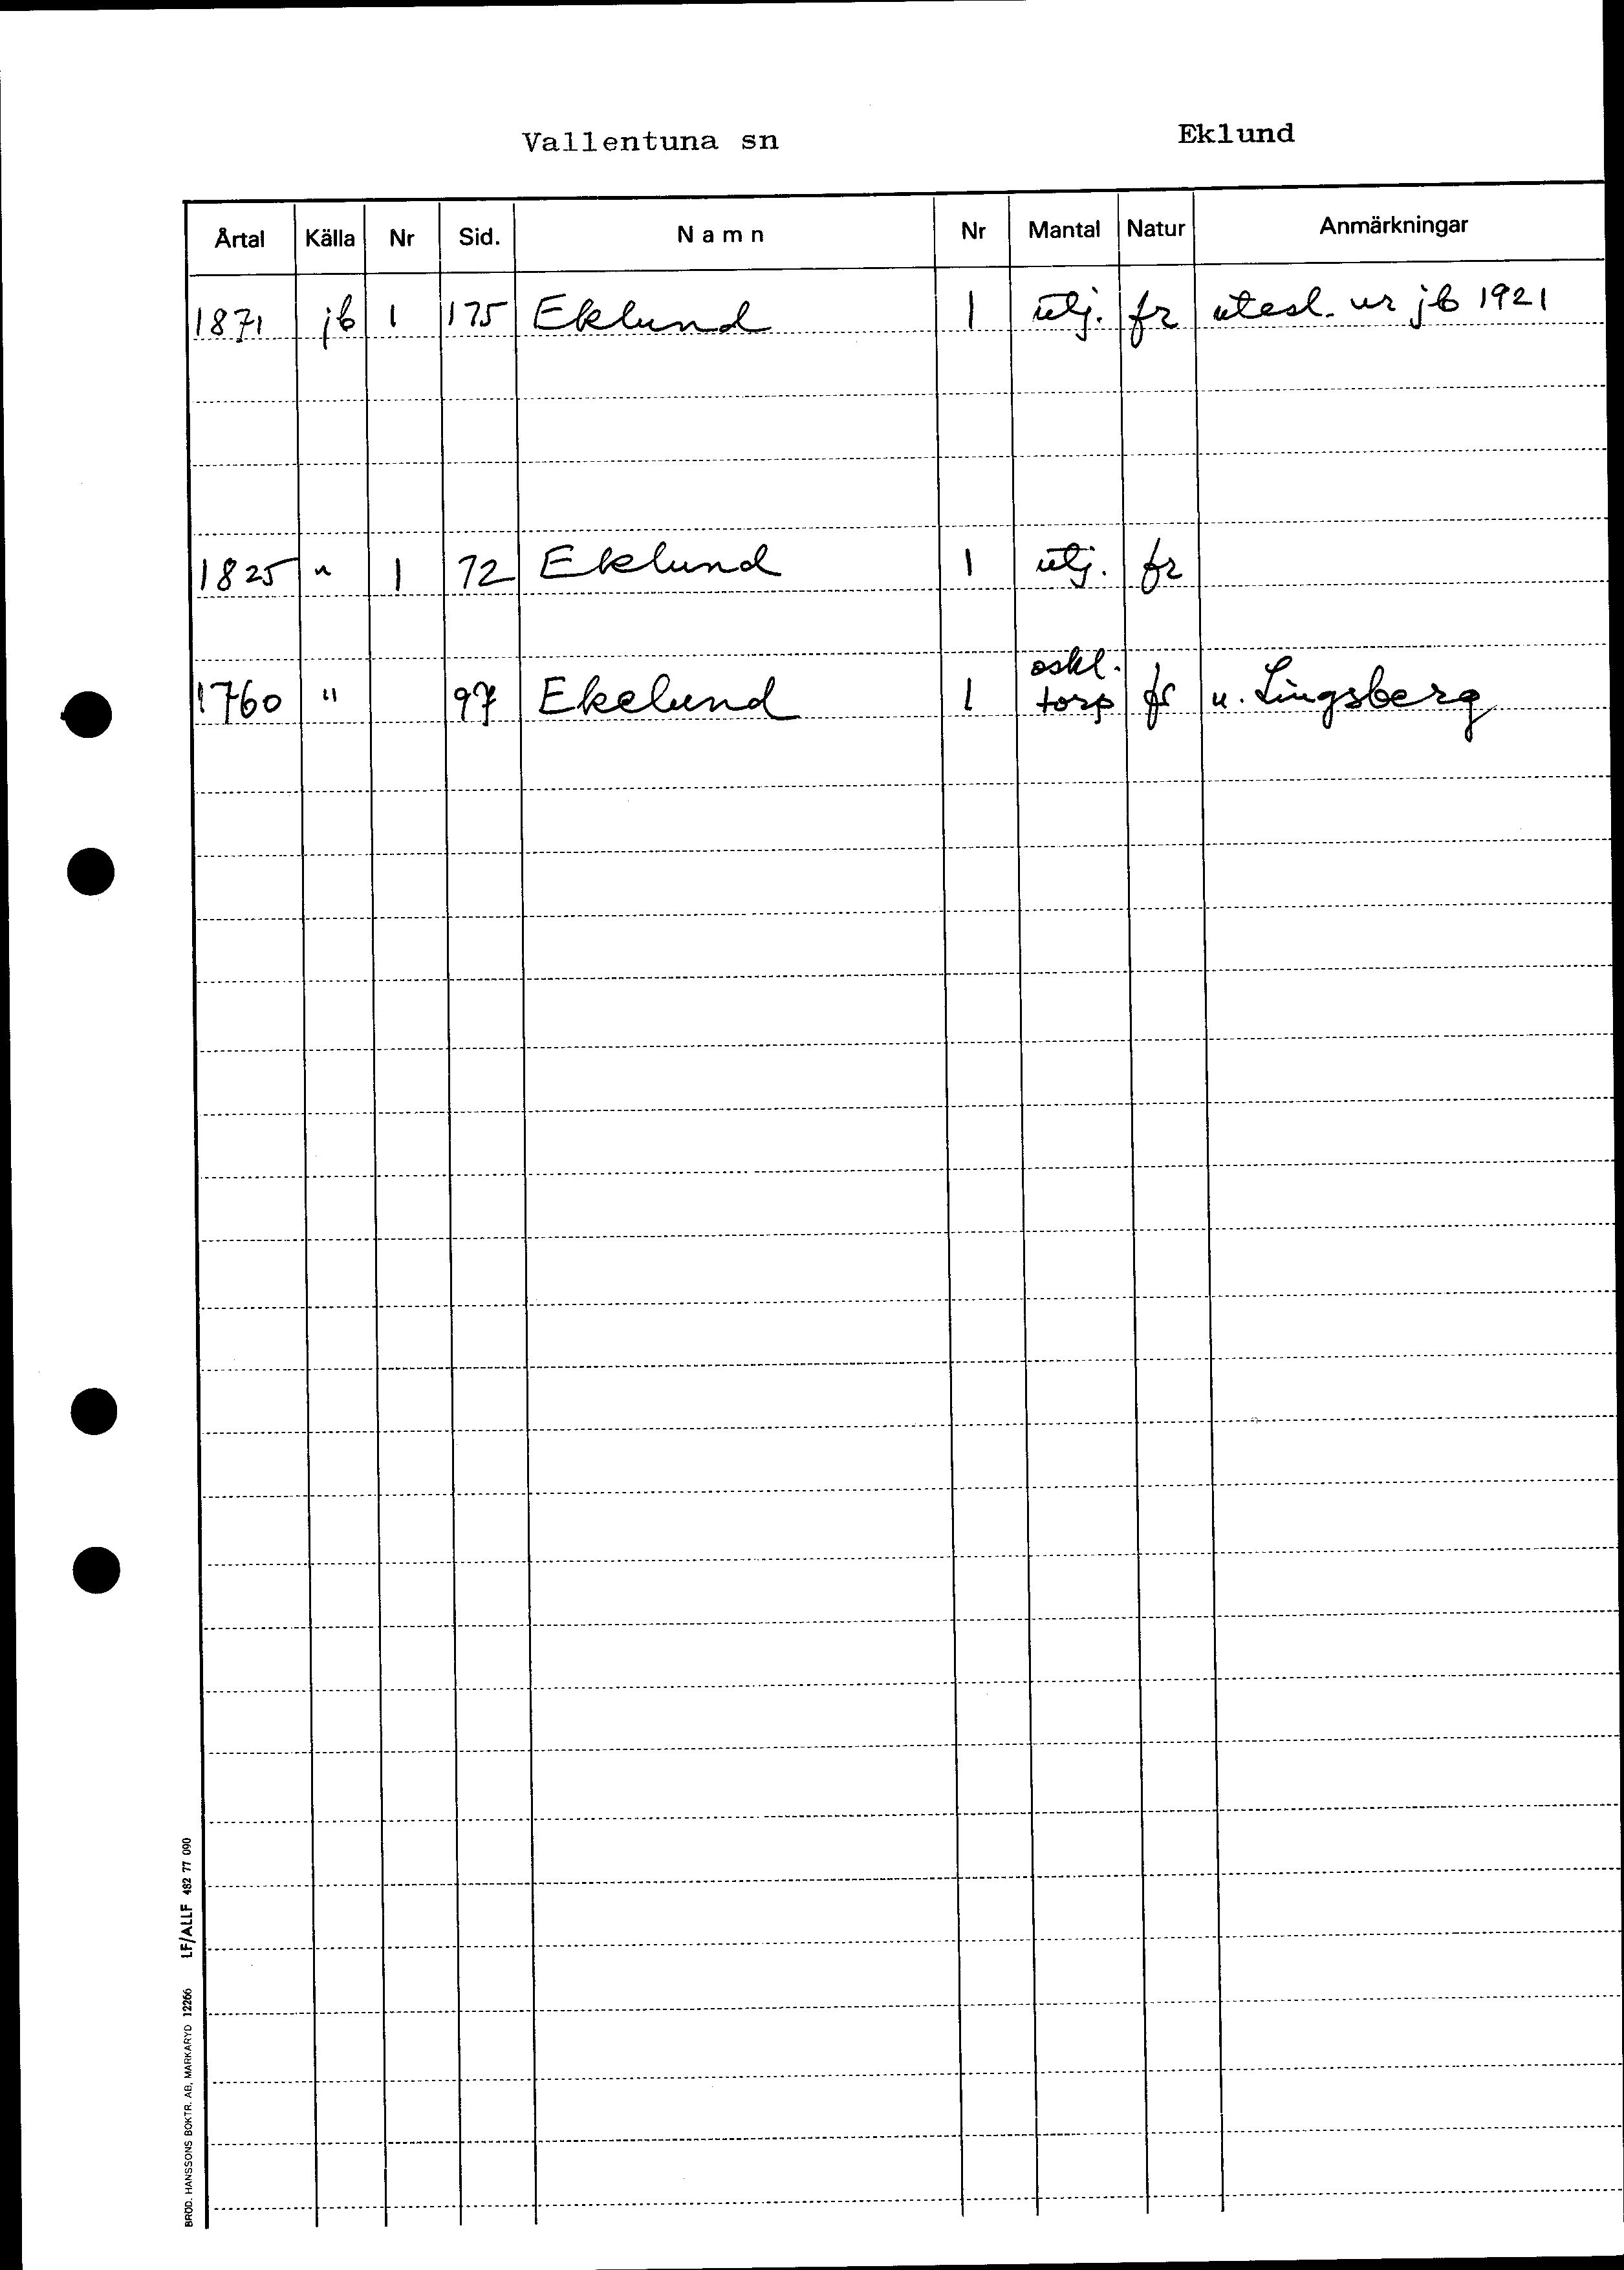 Vallentuna sn Eklund
Årtal Källa Nr Sid. Namn Nr Mantal Natur Anmärkningar
1871 jb 1 175 Eklund 1 utj. fr utesl. ur jb 1921
1825 " 1 72 Eklund 1 utj. fr
oskl.
1760 " 97 Ekelund 1 torp fr u. Lingsberg
BRÖD. HANSSONS BOKTR. AB, MARKARYD 12266 LF/ALLF 482 77 090